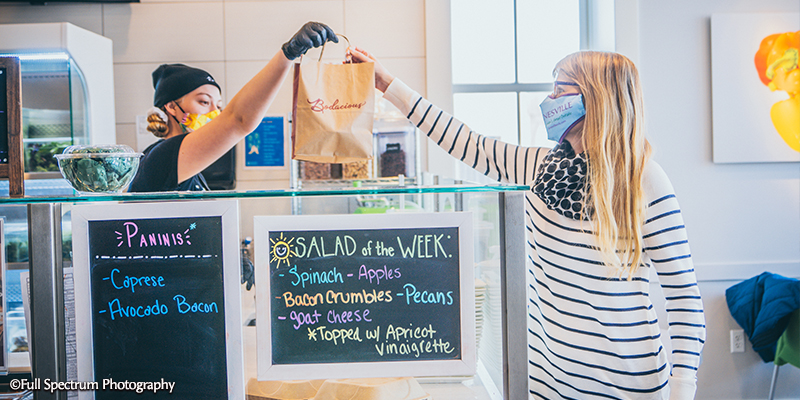 Bodacious
NESVILLE
PANINIS
- Caprese
- Avocado Bacon
SALAD of the WEEK:
- Spinach - Apples
- Bacon Crumbles - Pecans
- goat cheese
* Topped w/ Apricot
Vinaigrette
©Full Spectrum Photography